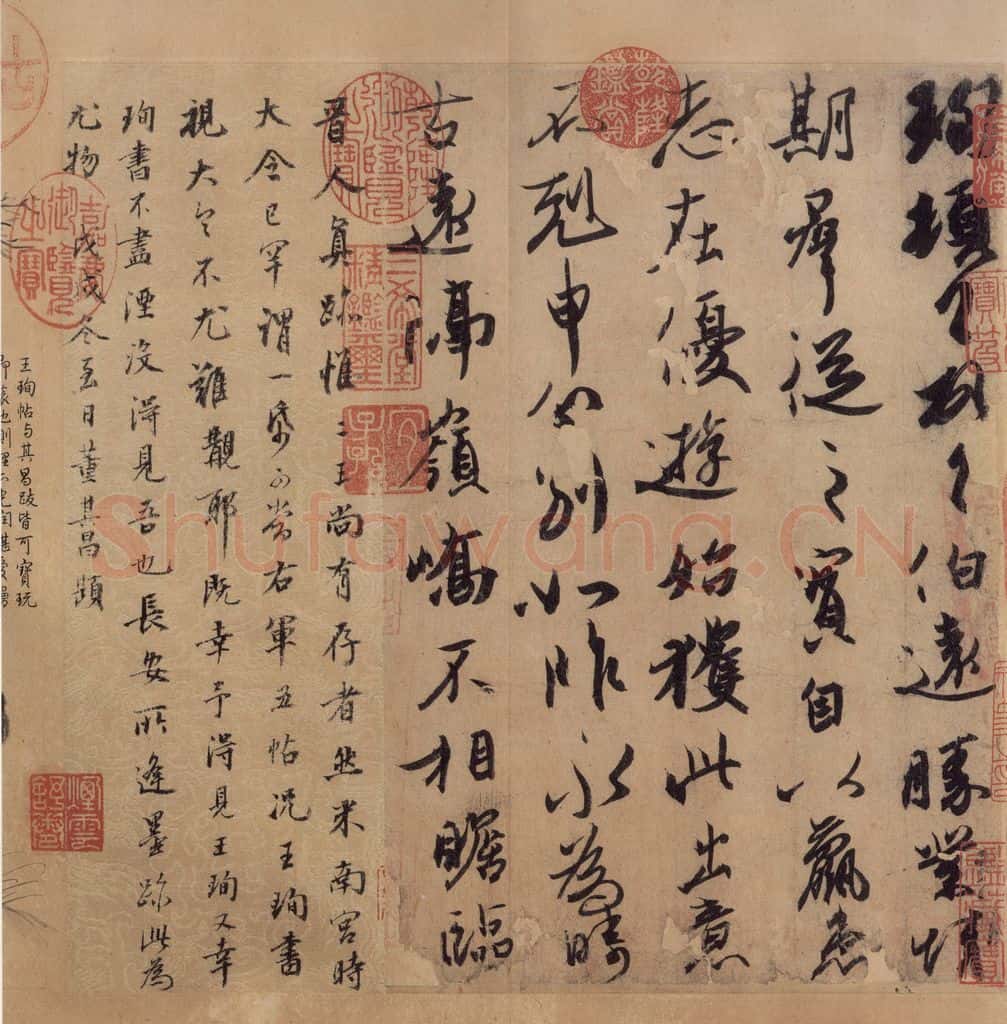 珣頓首頓首伯遠勝業情
期羣從之寶自以羸患
志在優遊始獲此出意
不剋申分別如昨永為疇
古遠隔嶺嶠不相瞻臨
乾隆鑑賞
乾隆御覽之寶
三希堂精鑑璽
宜子孫
晉人真跡惟二王尚有存者然米南宮時
大令已罕謂一紙可當右軍五帖況王珣書
視大令不尤難覯耶既幸予得見王珣又幸
珣書不盡湮沒得見吾也長安所逢墨跡此為
尤物戊戌冬至日董其昌題
嘉慶御覽之寶
王珣帖与其昌跋皆可寶玩
Shufawang.CN